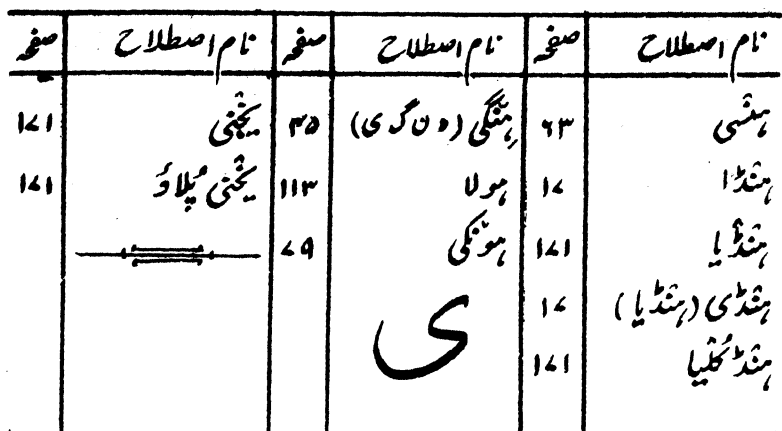 نام اصطلاح صفحہ نام اصطلاح صفحہ نام اصطلاح صفحہ
ہنسی ۶۳ ہِنگی (ہ ن گ ی) ۴۵ یخنی ۱۷۱
ہنڈا ۱۷ ہولا ۱۱۳ یخنی پُلاؤ ۱۷۱
ہنڈیا ۱۷۱ ہونکی ۷۹
ہنڈی (ہنڈیا) ۱۷ ی
ہنڈ کُلیا ۱۷۱